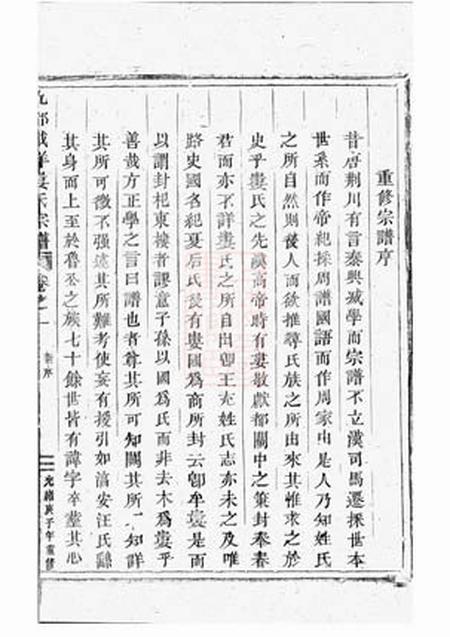 重修宗譜序
昔唐荆川有言秦興滅學而宗譜不立漢司馬遷採世本
世系而作帝紀採周譜國語而作周家由是人乃知姓氏
之所自然則後人而欲推尋氏族之所由來其惟求之於
史乎婁氏之先漢高帝時有婁敬獻都關中之策封奉春
君而亦不詳婁氏之所自出卽王充姓氏志亦未之及唯
路史國名紀夏后氏後有婁國爲商所封云卽牟婁是而
以謂封杞東樓者謬意子孫以國爲氏而非去木爲婁乎
善哉方正學之言曰譜也者尊其所可知闕其所不知詳
其所可徵不强述其所難考使妄有授引如滈安汪氏繇
其身而上至於魯公之族七十餘世皆有諱字卒塟其心
宗譜 卷之一
序
光緒庚子年重修